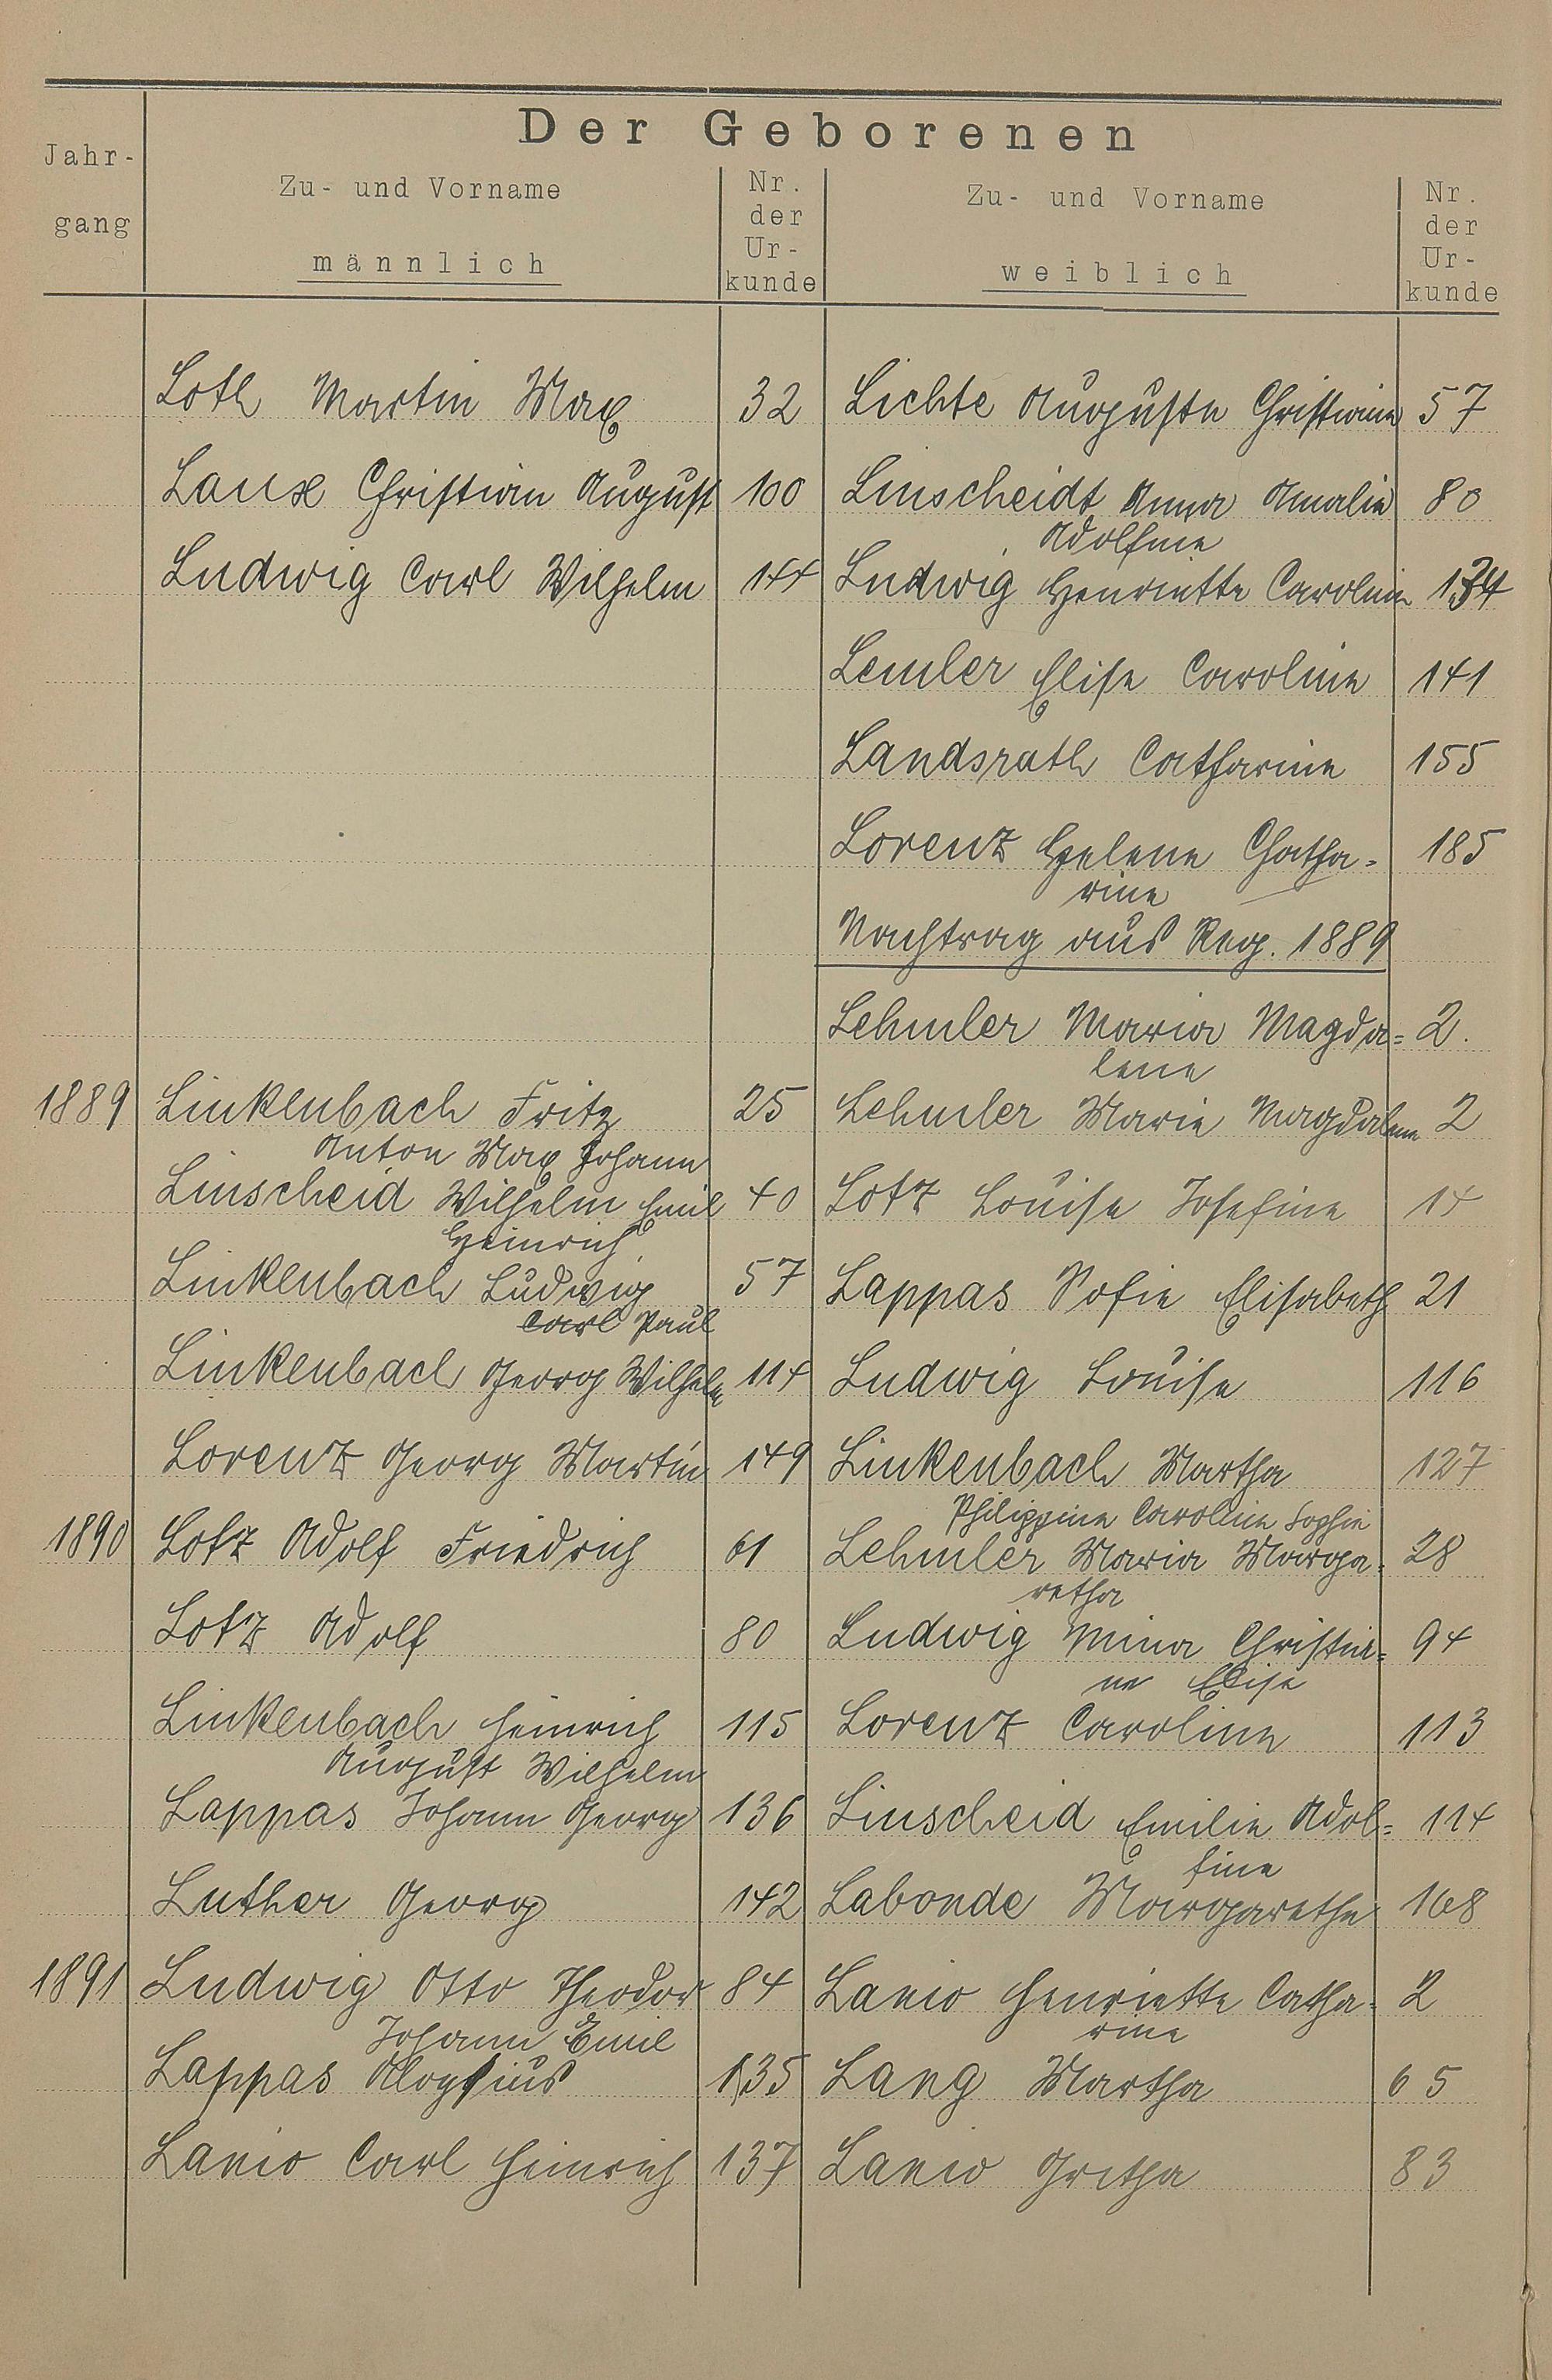 Der Geborenen
Jahr-
gang
Zu- und Vorname
männlich
Nr.
der
Ur-
kunde
Zu- und Vorname
weiblich
Nr.
der
Ur-
kunde
Loth Martin Max 32 Lichte Auguste Christiane 57
Laux Christian August 100 Linscheidt Anna Amalie 80
Adolfine
Ludwig Carl Wilhelm 144 Ludwig Henriette Caroline 134
Lemler Elise Caroline 141
Landsrath Catharine 155
Lorenz Helene Chatha- 185
rine
Nachtrag aus Reg. 1889
Lehmler Maria Magda= 2.
lene
1889 Linkenbach Fritz 25 Lehmler Marie Magdalene 2
Anton Max Johann
Linscheid Wilhelm Emil 40 Lotz Louise Josefine 14
Heinrich
Linkenbach Ludwig 57 Lappas Sofie Elisabeth 21
Carl Paul
Linkenbach Georg Wilhelm 114 Ludwig Louise 116
Lorenz Georg Martin 149 Linkenbach Martha 127
Philippine Caroline Sophie
1890 Lotz Adolf Friedrich 61 Lehmler Maria Marga- 28
retha
Lotz Adolf 80 Ludwig Mina Christia= 94
ne Elise
Linkenbach Heinrich 115 Lorenz Caroline 113
August Wilhelm
Lappas Johann Georg 136 Linscheid Emilie Adol= 114
fine
Luther Georg 142 Labonde Margarethe 168
1891 Ludwig Otto Theodor 84 Lanio Henriette Catha- 2
Johann Emil rine
Lappas Aloysius 135 Lang Martha 65
Lanio Carl Heinrich 137 Lanio Gretha 83